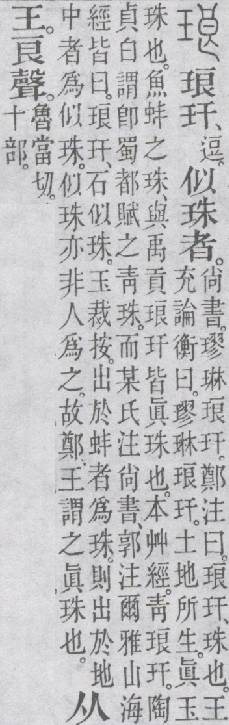 琅 琅玕、逗。似珠者。尙書。璆琳琅玕。鄭注曰。琅玕、珠也。王
充論衡曰。璆琳琅玕。土地所生。眞玉
珠也。魚蚌之珠。與禹貢琅玕皆眞珠也。本艸經。靑琅玕。陶
貞白謂卽蜀都賦之靑珠。而某氏注尙書、郭注爾雅山海
經皆曰。琅玕、石似珠。玉裁按。出於蚌者爲珠。則出於地
中者爲似珠。似珠亦非人爲之。故鄭、王謂之眞珠也。从
王。良聲。魯當切。
十部。